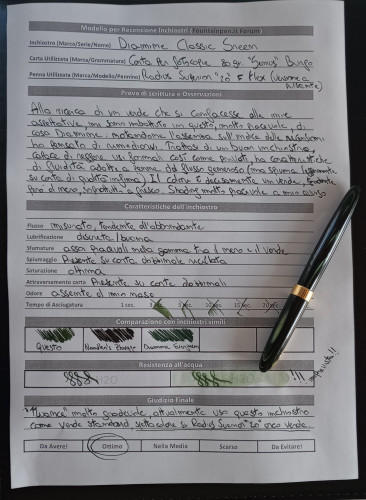 Modello per Recensione Inchiostri (Fountainpen.it Forum)
Inchiostro (Marca/Serie/Nome) Diamine Classic Green
Carta Utilizzata (Marca/Grammatura) Carta per fotocopie 80 gr
Penna Utilizzata (Marca/Modello/Pennino) Radius Superior "20" F Flex
Prova di scrittura e Osservazioni
Alla ricerca di un verde che si confacesse alle mie
aspettative, mi sono imbattuto in questo, molto piacevole, di
casa Diamine,
ho pensato di rimediarvi. Trattasi di un buon inchiostro,
capace di reggere usi formali così come privati, ha caratteristiche
di fluidità adatte a penne dal flusso generoso (ma spiuma leggermente
su carta di qualità infima). Il colore è decisamente un verde, tendente
però al nero, soprattutto a fresco. Shading molto piacevole a mio avviso
Caratteristiche dell'inchiostro
Flusso misurato, tendente all'abbondante
Lubrificazione discreta/buona
Sfumature assai piacevoli nella gamma fra il nero e il verde
Spiumaggio Presente su carta dozzinale
Saturazione ottima
Attraversamento carta Presente su carte dozzinali
Odore assente al mio naso
Tempo di Asciugatura 1 sec. 5 sec. 10 sec. 15 sec. 20 sec.
Comparazione con inchiostri simili
Questo Noodler's Diamine Evergreen
Resistenza all'acqua
H2O H2O !!!
Giudizio Finale
"Nuance" molto gradevole, attualmente uso questo inchiostro
come verde standard Radius Superior "20" orco verde.
Da Avere! Ottimo Nella Media Scarso Da Evitare!